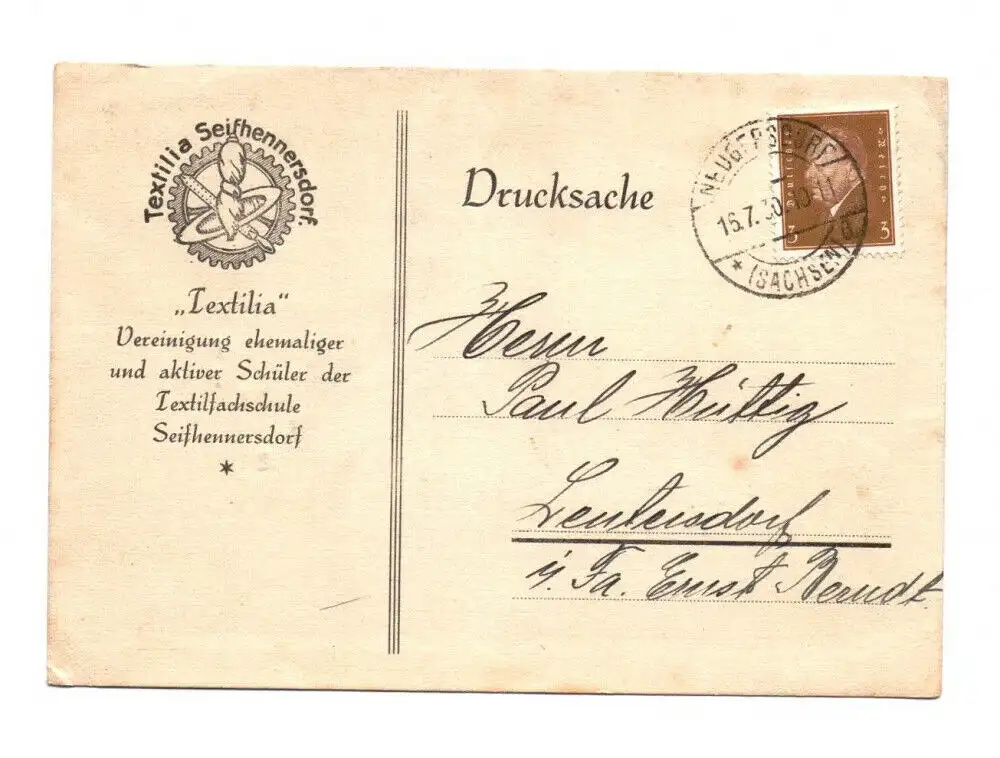 Textilia Seifhennersdorf.
„Textilia"
Vereinigung ehemaliger
und aktiver Schüler der
Textilfachschule
Seifhennersdorf
*
Drucksache
NEUGERSDORF
16.7.30.10-11
* (SACHSEN) a
Deutsches Reich
3 3
Herrn
Paul Hüttig
Leutersdorf
i. Fa. Ernst Berndt.